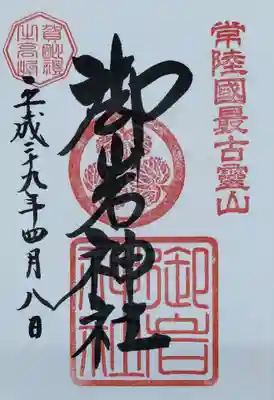 常陸國最古霊山
御岩神社
平成二十九年四月八日
御岩
神社